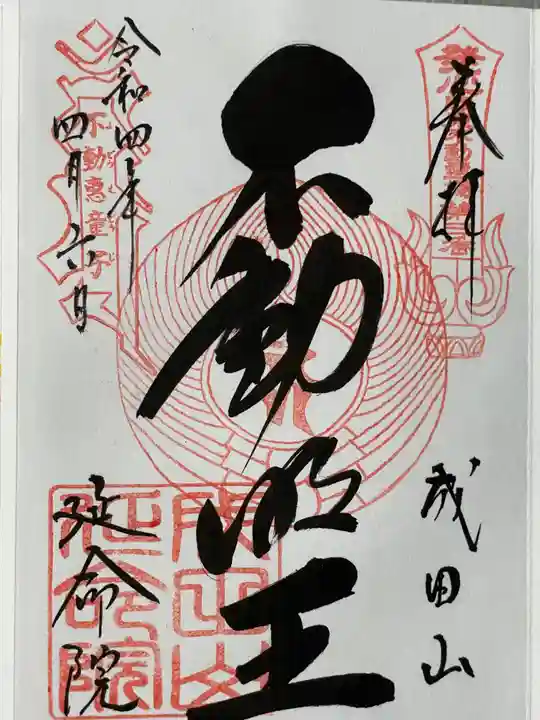 奉拝
成田山
不動明王
令和四年
四月六日
不動恵童子
延命院